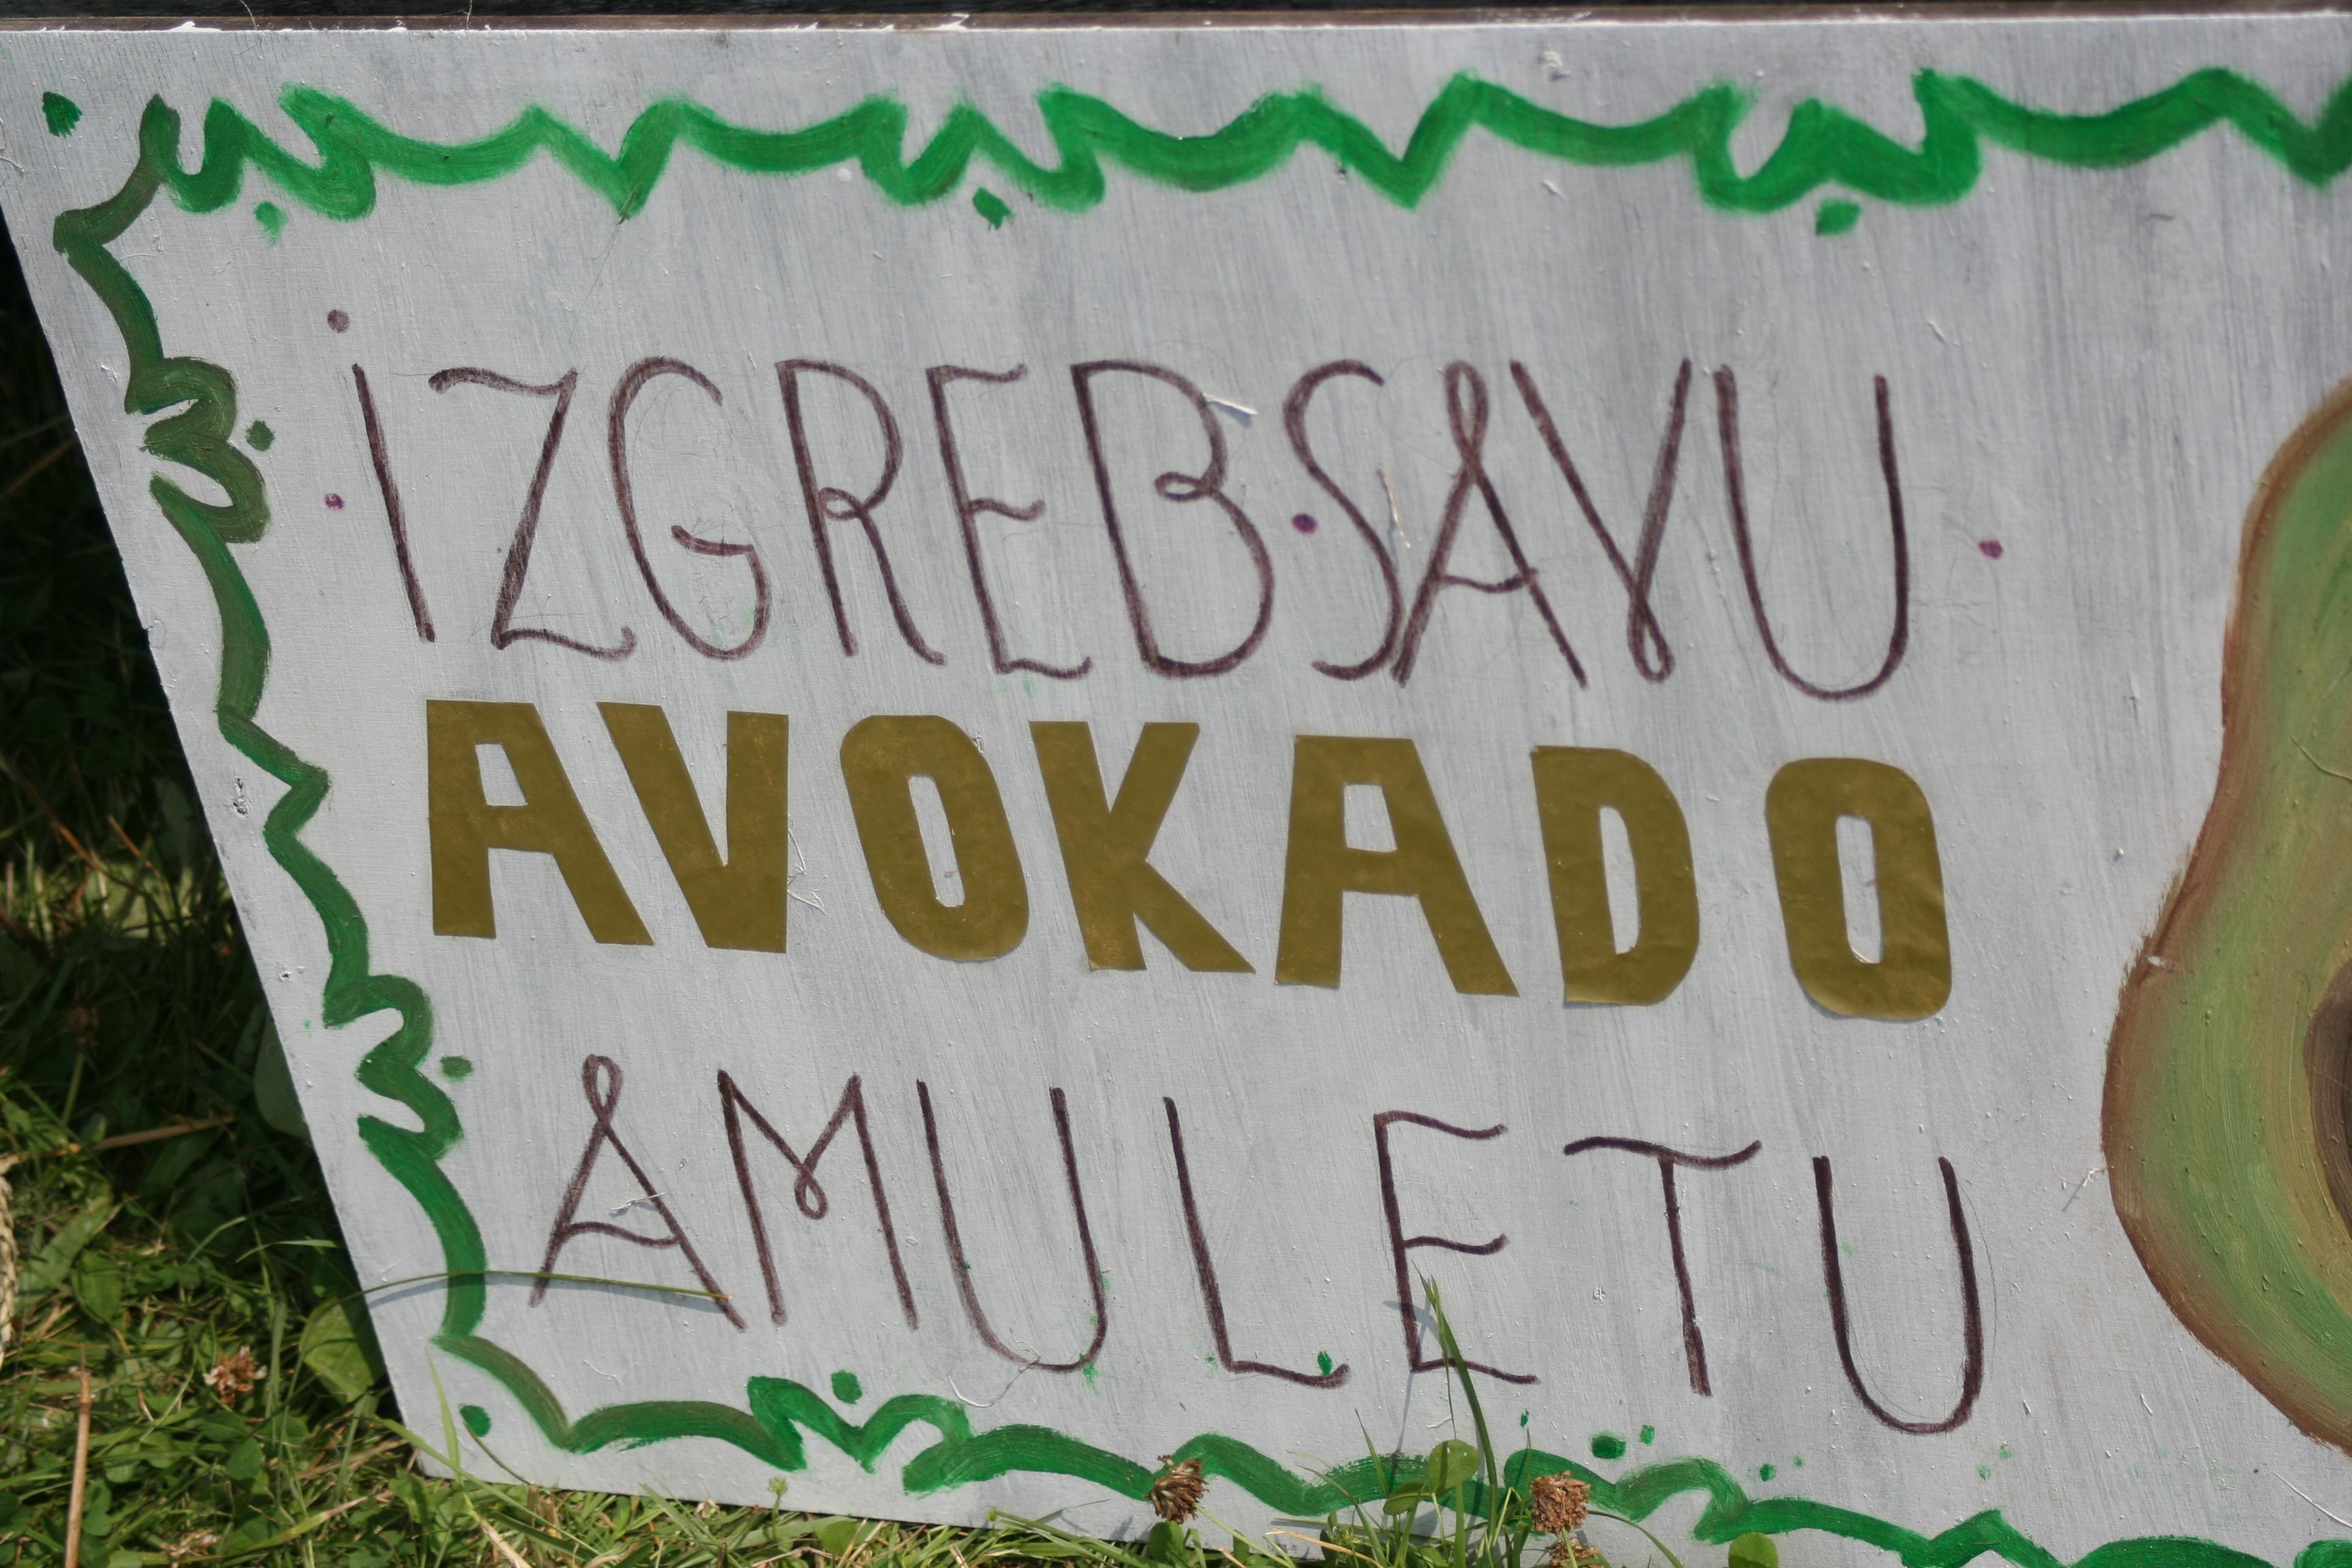 IZGREB SAVU
AVOKADO
AMULETU